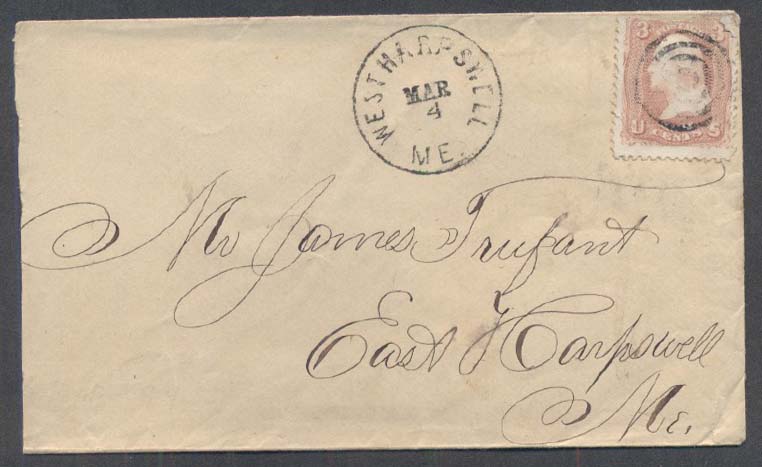 WEST HARPSWELL
MAR
4
ME.
3 3
U CENTS S
Mr James Trufant
East Harpswell
Me.